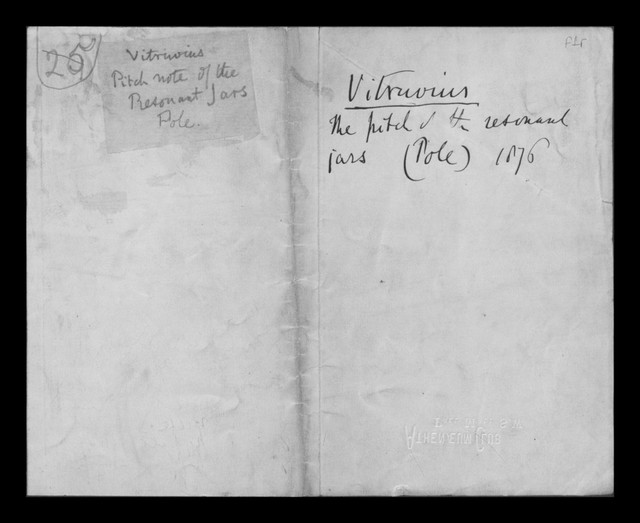 25
Vitruvius
Pitch note of the
Resonant Jars
Pole.
Vitruvius
The pitch of the resonant
jars (Pole) 1876
ATHENAEUM CLUB